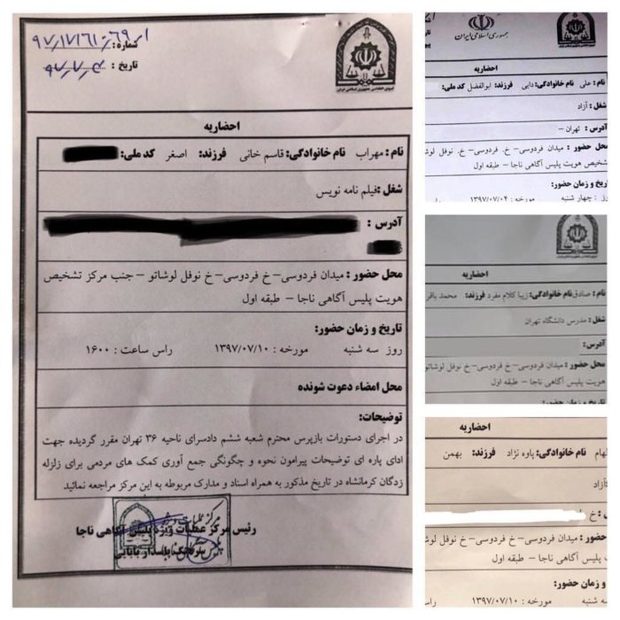 شماره: ۹۷/۱۷۱۶۱۰۶۹/۱
تاریخ: ۹۷/۷/۴
احضاریه
نام: مهراب نام خانوادگی: قاسم خانی فرزند: اصغر کد ملی:
شغل: فیلم نامه نویس
آدرس :
محل حضور: میدان فردوسی- خ فردوسی- خ نوفل لوشاتو - جنب مرکز تشخیص
هویت پلیس آگاهی ناجا - طبقه اول
تاریخ و زمان حضور:
روز سه شنبه مورخه : ۱۳۹۷/۰۷/۱۰ راس ساعت : ۱۶۰۰
محل امضاء دعوت شونده
توضیحات:
در اجرای دستورات بازپرس محترم شعبه ششم دادسرای ناحیه ۳۶ تهران مقرر گردیده جهت
ادای پاره ای توضیحات پیرامون نحوه و چگونگی جمع آوری کمک های مردمی برای زلزله
زدگان کرمانشاه در تاریخ مذکور به همراه اسناد و مدارک مربوطه به این مرکز مراجعه نمائید
رئیس مرکز عملیات ویژه پلیس آگاهی ناجا
سرهنگ پاسدار بابایی
جمهوری اسلامی ایران
احضاریه
نام: علی نام خانوادگی: دایی فرزند: ابوالفضل کد ملی:
شغل: آزاد
آدرس : تهران -
محل حضور: میدان فردوسی- خ. فردوسی- خ. نوفل لوشاتو
تشخیص هویت پلیس آگاهی ناجا - طبقه اول
تاریخ و زمان حضور:
روز : چهار شنبه مورخه : ۱۳۹۷/۰۷/۰۴
احضاریه
نام: صادق نام خانوادگی: زیبا کلام مفرد فرزند: محمد باقر
شغل : مدرس دانشگاه تهران
آدرس :
محل حضور : میدان فردوسی- خ فردوسی- خ نوفل لوشاتو
هویت پلیس آگاهی ناجا - طبقه اول
تاریخ و زمان حضور:
احضاریه
الهام نام خانوادگی: پاوه نژاد فرزند: بهمن
آزاد
خ
حضور : میدان فردوسی- خ فردوسی- خ نوفل لوشاتو
پلیس آگاهی ناجا - طبقه اول
و زمان حضور:
سه شنبه مورخه : ۱۳۹۷/۰۷/۱۰ راس